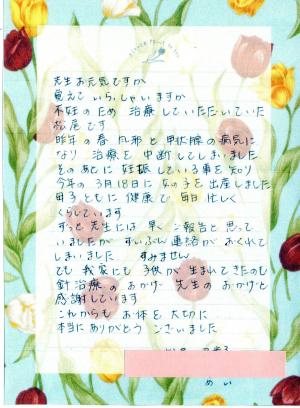 先生お元気ですか
覚えていらっしゃいますか
不妊のため 治療していただいていた
松尾です
昨年の春 風邪と甲状腺の病気に
なり 治療を中断してしまいました
そのあとに 妊娠している事を知り
今年の3月18日に女の子を出産しました
母子ともに健康で 毎日忙しく
くらしています
ずっと先生には早くご報告と思って
いましたが ずいぶん連絡がおくれて
しまいました すみません
でも 我家にも子供が生まれてきたのも
針治療のおかげ 先生のおかげと
感謝しています
これからも お体を大切に
本当にありがとうございました
めい